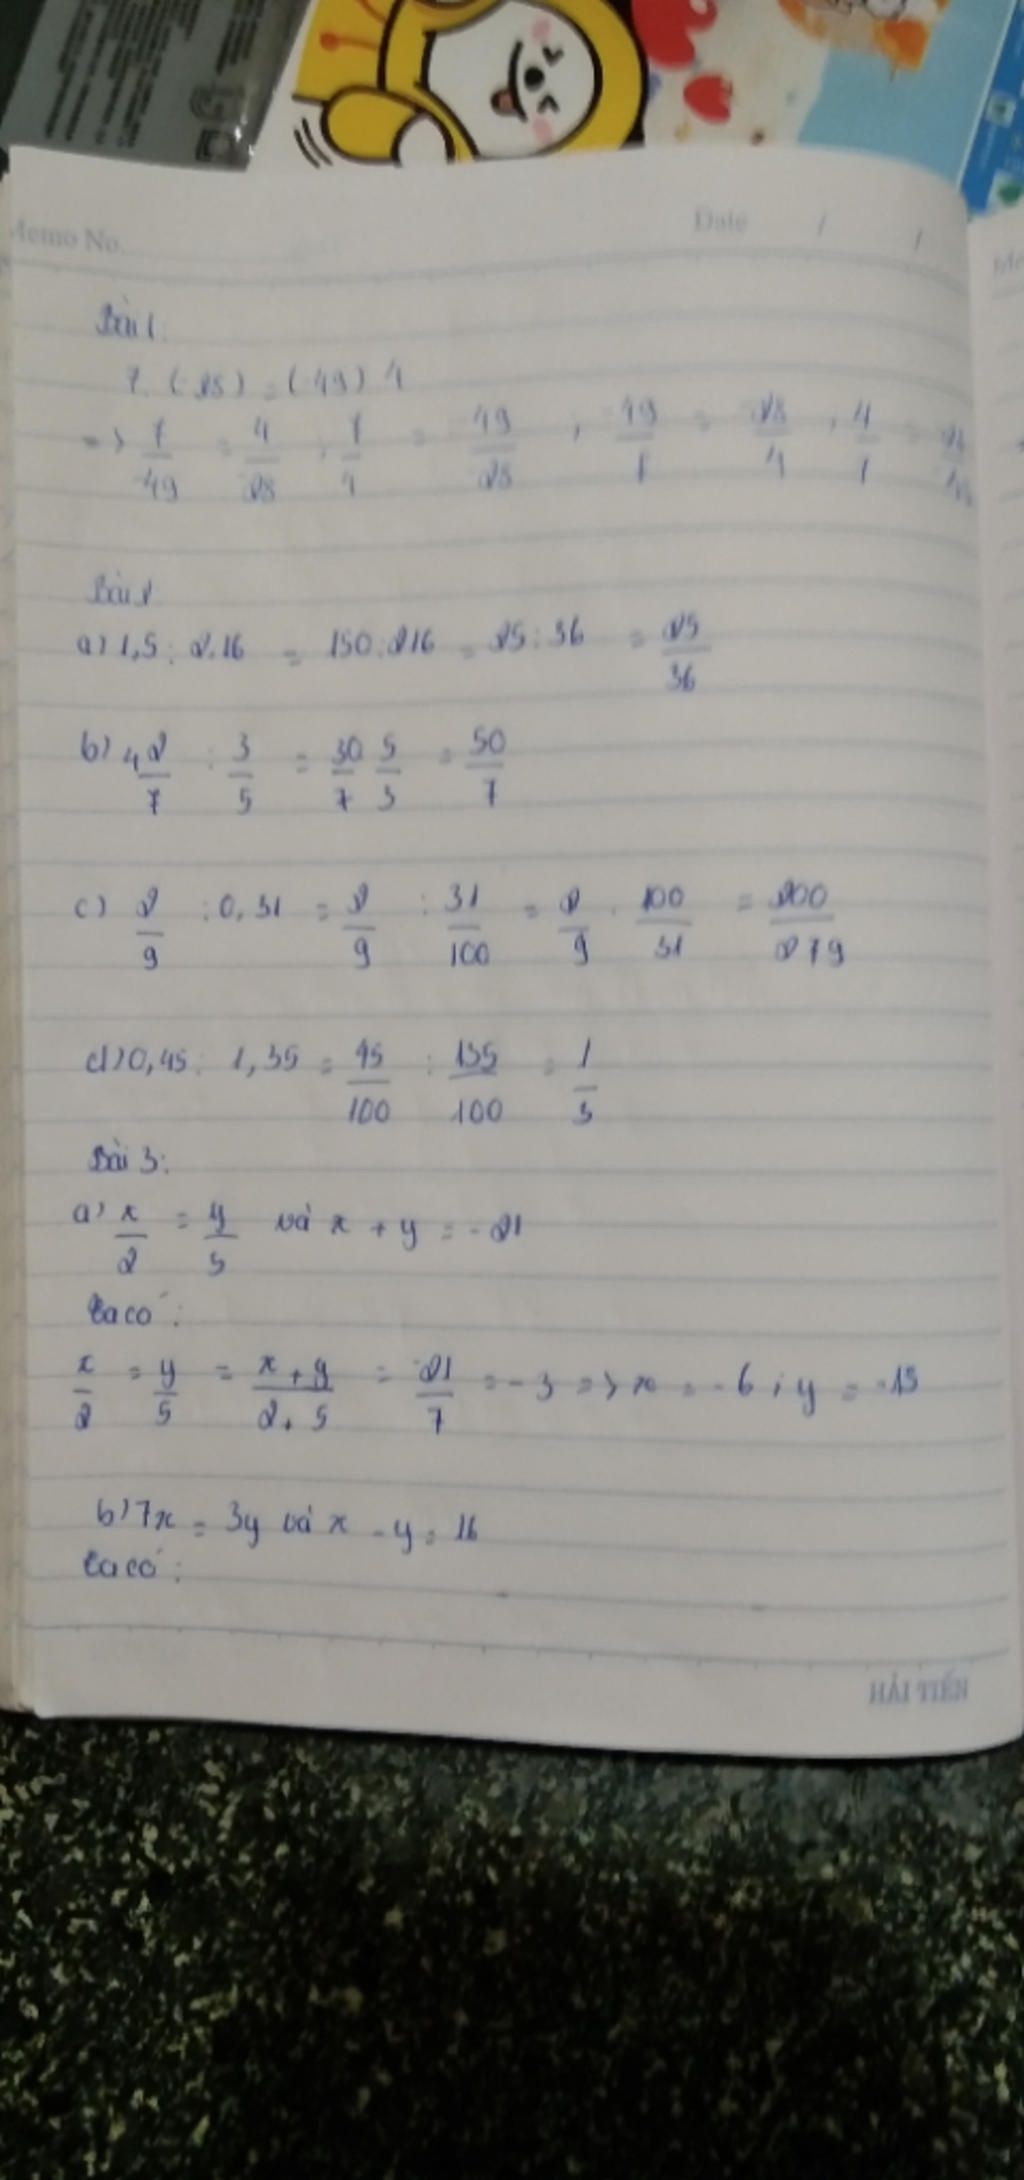 Memo No.
Date / /
Bài 1:
7. (-28) = (-49) 4
=> 7/-49 = 4/-28 ; 7/4 = -49/-28 ; -49/7 = -28/4 ; 4/7 =
Bài 2
a) 1,5 : 2,16 = 150 : 216 = 25 : 36 = 25/36
b) 4 2/7 : 3/5 = 30/7 . 5/3 = 50/7
c) 2/9 : 0,31 = 2/9 : 31/100 = 2/9 . 100/31 = 200/279
d) 0,45 : 1,35 = 45/100 : 135/100 = 1/3
Bài 3:
a) x/2 = y/5 và x + y = -21
ta có :
x/2 = y/5 = x + y/2 + 5 = -21/7 = -3 => x = -6 ; y = -15
b) 7x = 3y và x - y = 16
ta có :
HẢI TIẾN